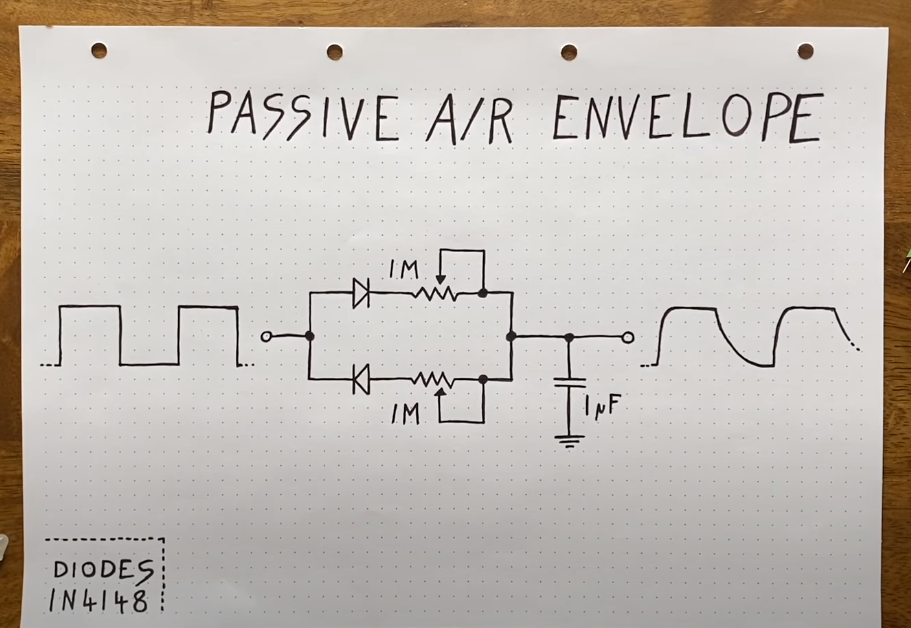 PASSIVE A/R ENVELOPE
1M
1M
1µF
DIODES
1N4148